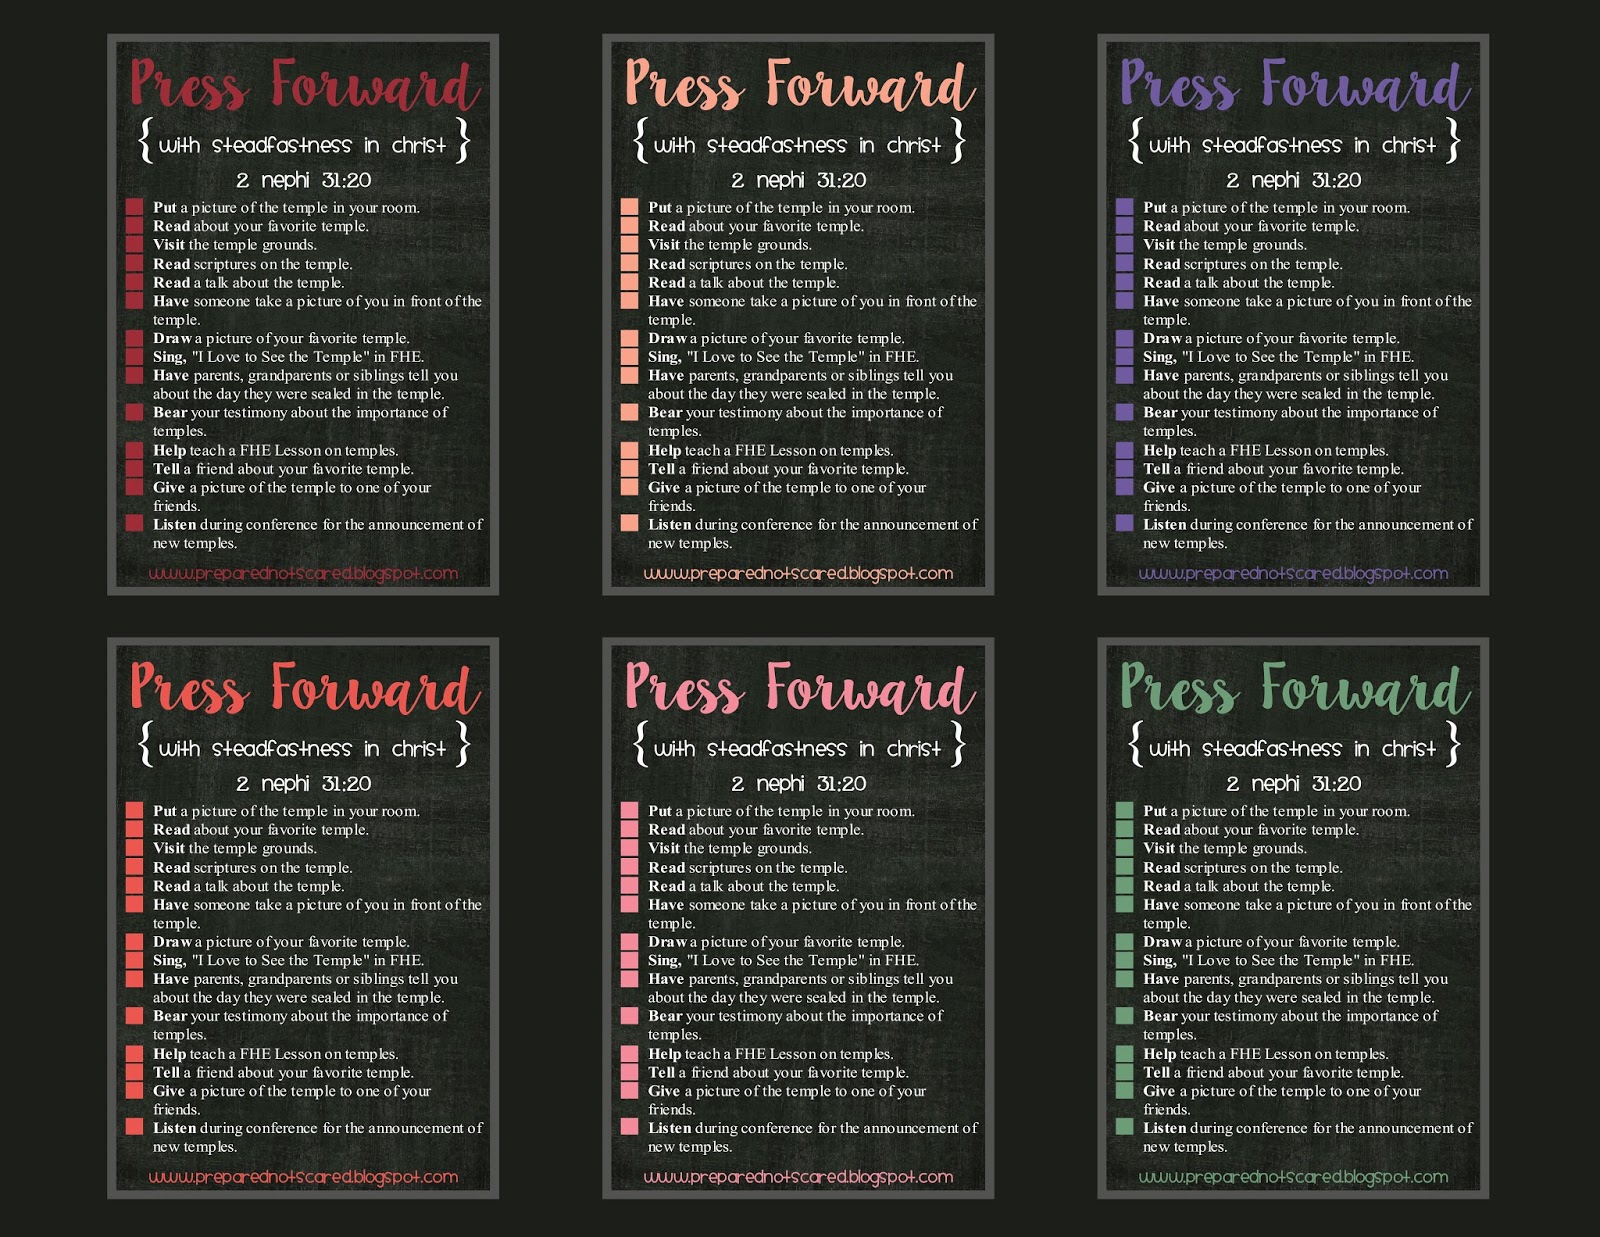 Press Forward
{with steadfastness in christ}
2 nephi 31:20
Put a picture of the temple in your room.
Read about your favorite temple.
Visit the temple grounds.
Read scriptures on the temple.
Read a talk about the temple.
Have someone take a picture of you in front of the
temple.
Draw a picture of your favorite temple.
Sing, "I Love to See the Temple" in FHE.
Have parents, grandparents or siblings tell you
about the day they were sealed in the temple.
Bear your testimony about the importance of
temples.
Help teach a FHE Lesson on temples.
Tell a friend about your favorite temple.
Give a picture of the temple to one of your
friends.
Listen during conference for the announcement of
new temples.
www.preparednotscared.blogspot.com
Press Forward
{with steadfastness in christ}
2 nephi 31:20
Put a picture of the temple in your room.
Read about your favorite temple.
Visit the temple grounds.
Read scriptures on the temple.
Read a talk about the temple.
Have someone take a picture of you in front of the
temple.
Draw a picture of your favorite temple.
Sing, "I Love to See the Temple" in FHE.
Have parents, grandparents or siblings tell you
about the day they were sealed in the temple.
Bear your testimony about the importance of
temples.
Help teach a FHE Lesson on temples.
Tell a friend about your favorite temple.
Give a picture of the temple to one of your
friends.
Listen during conference for the announcement of
new temples.
www.preparednotscared.blogspot.com
Press Forward
{with steadfastness in christ}
2 nephi 31:20
Put a picture of the temple in your room.
Read about your favorite temple.
Visit the temple grounds.
Read scriptures on the temple.
Read a talk about the temple.
Have someone take a picture of you in front of the
temple.
Draw a picture of your favorite temple.
Sing, "I Love to See the Temple" in FHE.
Have parents, grandparents or siblings tell you
about the day they were sealed in the temple.
Bear your testimony about the importance of
temples.
Help teach a FHE Lesson on temples.
Tell a friend about your favorite temple.
Give a picture of the temple to one of your
friends.
Listen during conference for the announcement of
new temples.
www.preparednotscared.blogspot.com
Press Forward
{with steadfastness in christ}
2 nephi 31:20
Put a picture of the temple in your room.
Read about your favorite temple.
Visit the temple grounds.
Read scriptures on the temple.
Read a talk about the temple.
Have someone take a picture of you in front of the
temple.
Draw a picture of your favorite temple.
Sing, "I Love to See the Temple" in FHE.
Have parents, grandparents or siblings tell you
about the day they were sealed in the temple.
Bear your testimony about the importance of
temples.
Help teach a FHE Lesson on temples.
Tell a friend about your favorite temple.
Give a picture of the temple to one of your
friends.
Listen during conference for the announcement of
new temples.
www.preparednotscared.blogspot.com
Press Forward
{with steadfastness in christ}
2 nephi 31:20
Put a picture of the temple in your room.
Read about your favorite temple.
Visit the temple grounds.
Read scriptures on the temple.
Read a talk about the temple.
Have someone take a picture of you in front of the
temple.
Draw a picture of your favorite temple.
Sing, "I Love to See the Temple" in FHE.
Have parents, grandparents or siblings tell you
about the day they were sealed in the temple.
Bear your testimony about the importance of
temples.
Help teach a FHE Lesson on temples.
Tell a friend about your favorite temple.
Give a picture of the temple to one of your
friends.
Listen during conference for the announcement of
new temples.
www.preparednotscared.blogspot.com
Press Forward
{with steadfastness in christ}
2 nephi 31:20
Put a picture of the temple in your room.
Read about your favorite temple.
Visit the temple grounds.
Read scriptures on the temple.
Read a talk about the temple.
Have someone take a picture of you in front of the
temple.
Draw a picture of your favorite temple.
Sing, "I Love to See the Temple" in FHE.
Have parents, grandparents or siblings tell you
about the day they were sealed in the temple.
Bear your testimony about the importance of
temples.
Help teach a FHE Lesson on temples.
Tell a friend about your favorite temple.
Give a picture of the temple to one of your
friends.
Listen during conference for the announcement of
new temples.
www.preparednotscared.blogspot.com